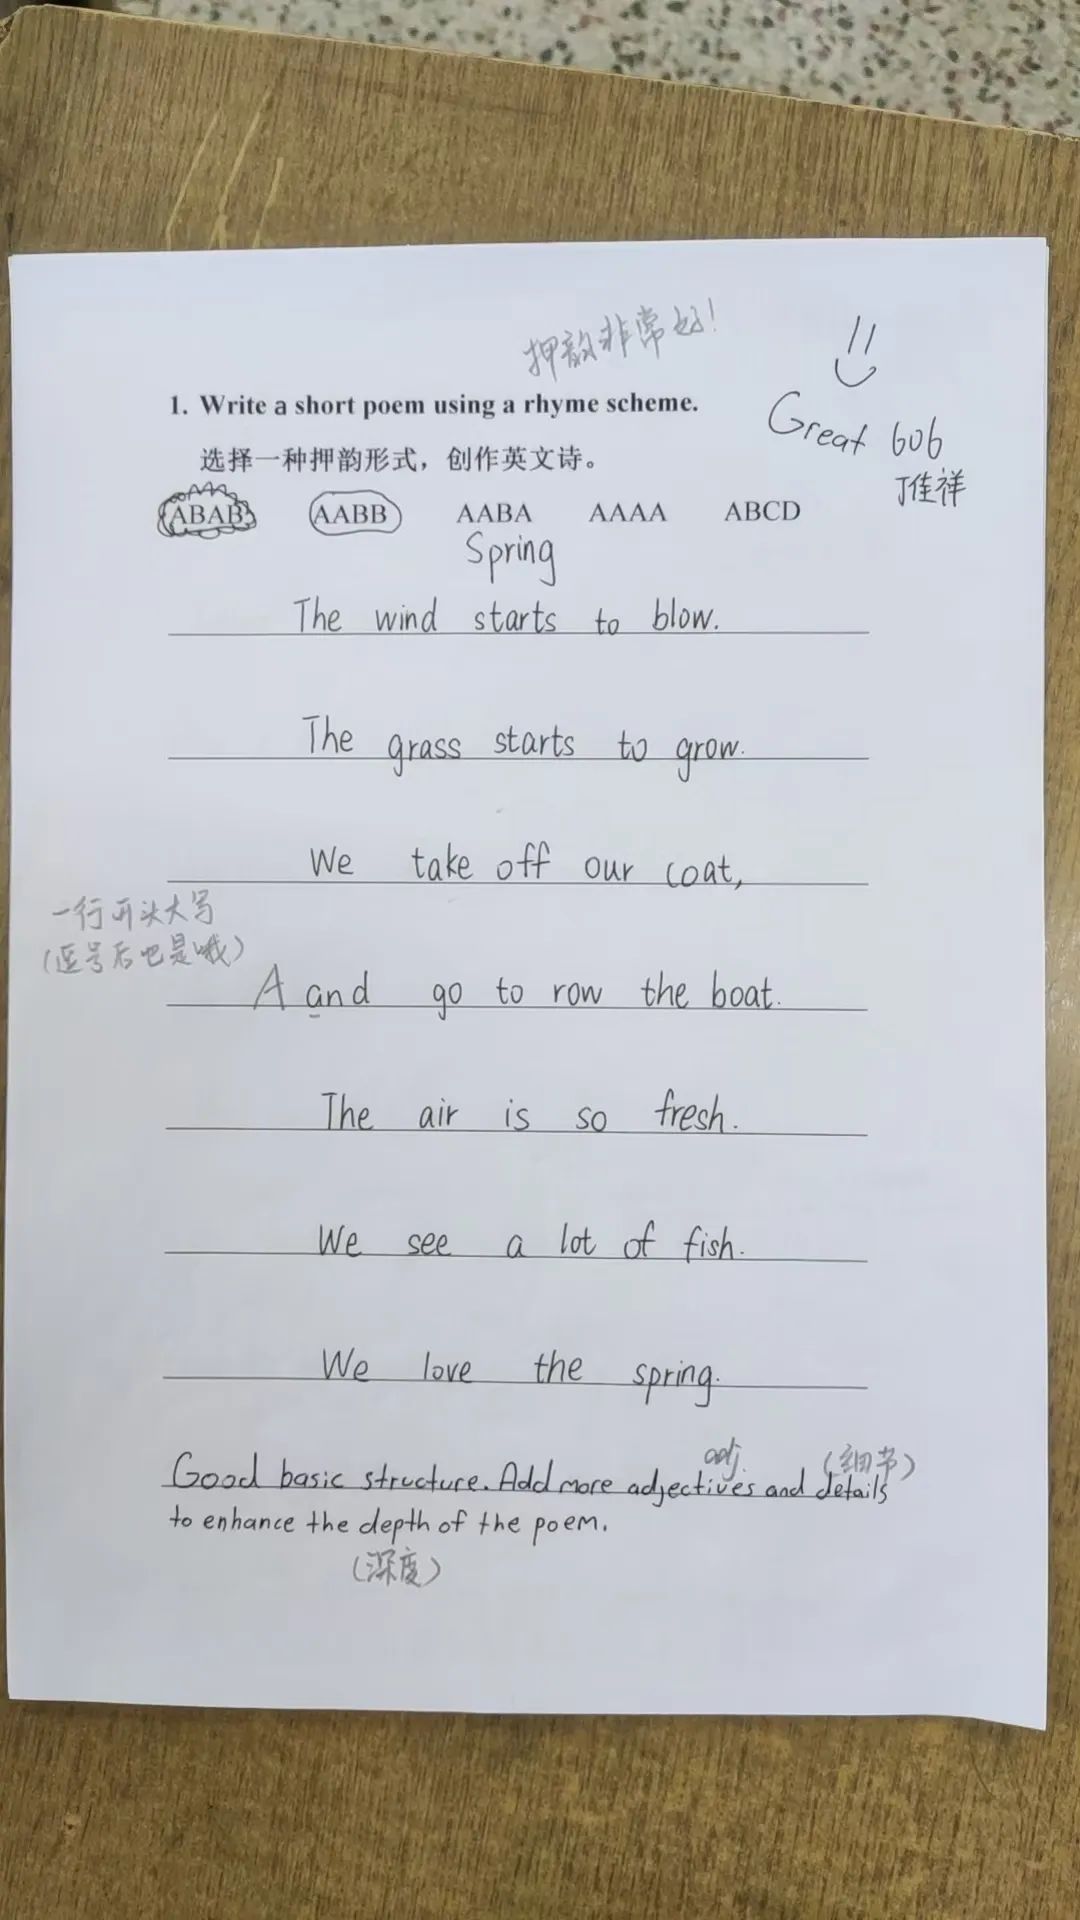 押韵非常好!
1. Write a short poem using a rhyme scheme.
Great 606
选择一种押韵形式，创作英文诗。
丁佳祥
ABAB AABB AABA AAAA ABCD
Spring
The wind starts to blow.
The grass starts to grow.
We take off our coat,
一行开头大写
(逗号后也是哦)
A and go to row the boat.
The air is so fresh.
We see a lot of fish.
We love the spring.
adj. (细节)
Good basic structure. Add more adjectives and details
to enhance the depth of the poem.
(深度)